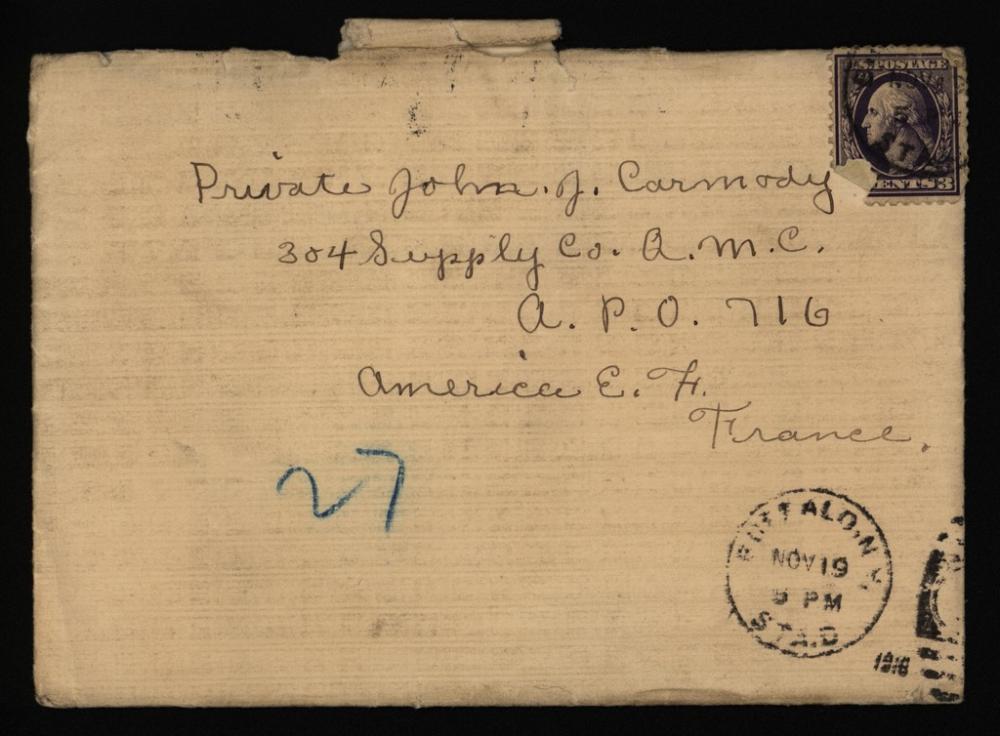 U.S. POSTAGE
NOV
5
ST
CENTS 3
Private John. J. Carmody
304 Supply Co. Q. M. C.
A. P. O. 716
America E. F.
France.
27
BUFFALO, N.Y.
NOV 19
5 PM
STA. D
1918